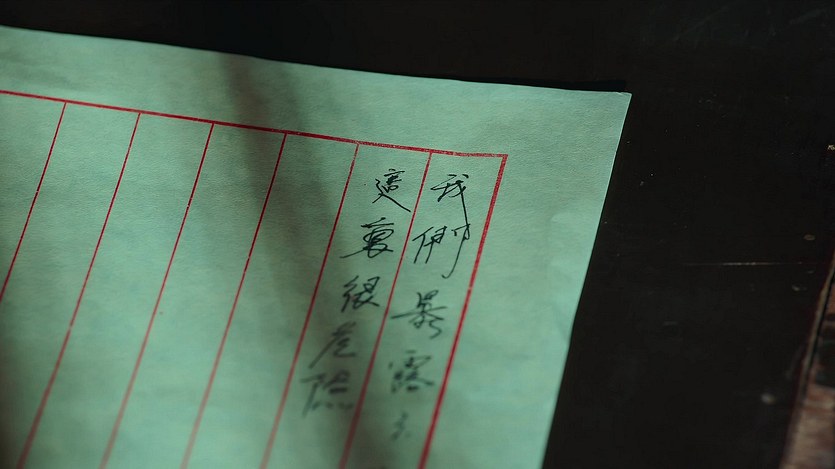 我們暴露了
這裏很危險